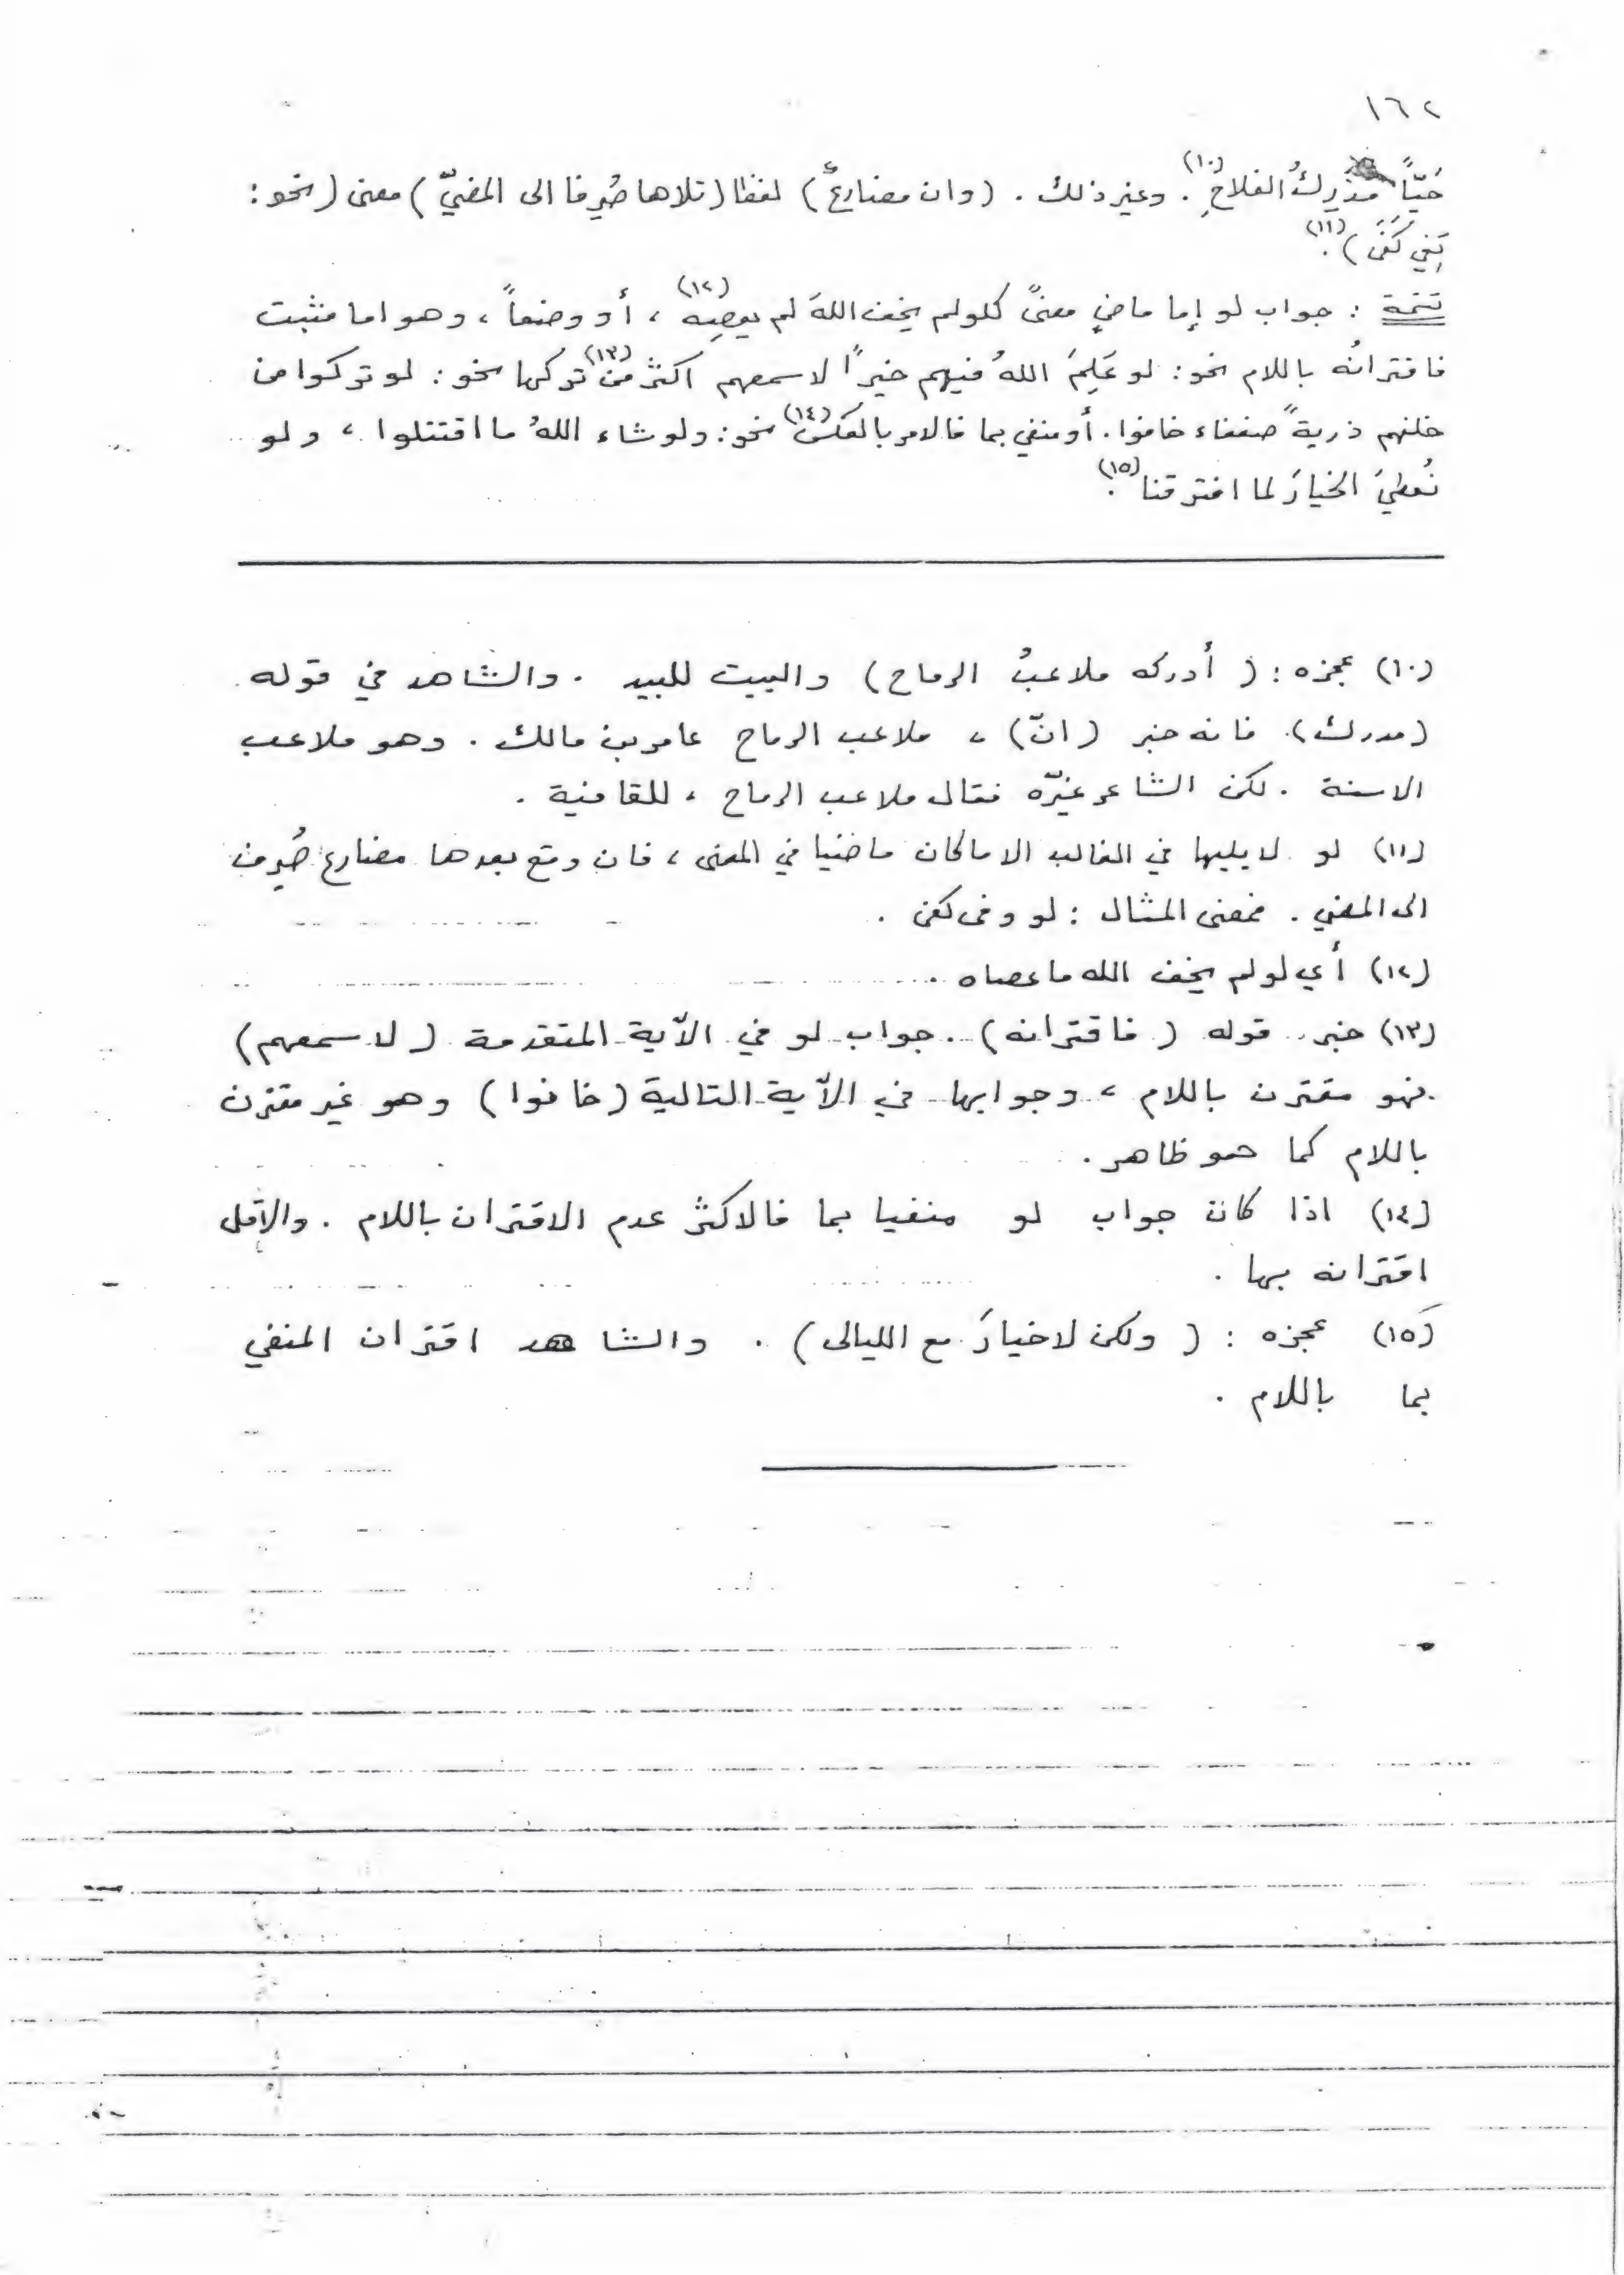 ١٦٢
حَيّاً مدرِكُ الفلاحِ(١٠). وغير ذلك . (وان مضارعٌ) لفظا (تلاها صُرِفا الى المضيّ) معنى (نحو:
يَفي كَفَى)(١١).
تتمة : جواب لو إما ماضٍ معنىً كلولم يخف اللهَ لم يعصِه(١٢)، أو وضعاً، وهو اما مثبت
فاقترانُه باللام نحو: لو عَلِمَ اللهُ فيهم خيراً لاسمعهم اكثرُ من(١٣) تركها نحو: لو تركوا من
خلفهم ذريةً ضعفاء خافوا. أو منفي بما فالامر بالعكس(١٤) نحو: ولو شاء اللهُ ما اقتتلوا ، ولو
نُعطَيَ الخيارَ لما افترقنا(١٥).
(١٠) عجزه : (أدركه ملاعبُ الرماح) والبيت للبيد . والشاهد في قوله
(مدرك). فانه خبر (انّ) ، ملاعب الرماح عامر بن مالك . وهو ملاعب
الاسنة . لكن الشاعر غيّره فقال ملاعب الرماح ، للقافية .
(١١) لو لا يليها في الغالب الا ما كان ماضيا في المعنى ، فان وقع بعدها مضارع صُرِف
الى المضي . فمعنى المثال : لو وفى كفى .
(١٢) أي لو لم يخف الله ما عصاه .
(١٣) خبر قوله (فاقترانه). جواب لو في الآية المتقدمة (لاسمعهم)
فهو مقترن باللام ، وجوابها في الآية التالية (خافوا) وهو غير مقترن
باللام كما هو ظاهر .
(١٤) اذا كان جواب لو منفيا بما فالاكثر عدم الاقتران باللام . والاقل
اقترانه بها .
(١٥) عجزه : (ولكن لاخيارَ مع الليالى) . والشاهد اقتران المنفي
بما باللام .